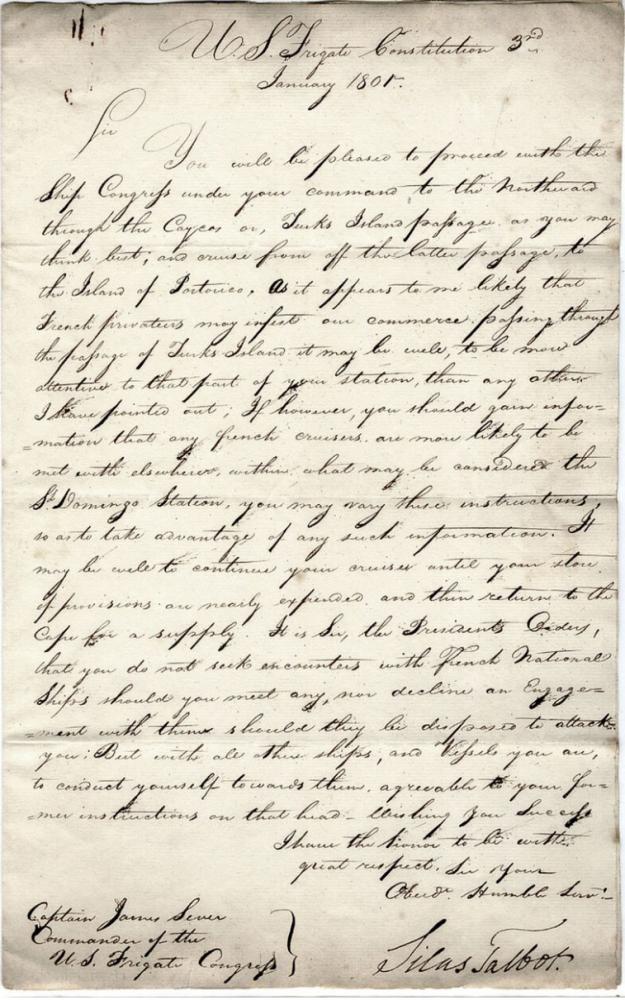 U. S. Frigate Constitution 3rd
January 1801.
Sir
You will be pleased to proceed with the
Ship Congress under your command to the Northward
through the Caycos or, Turks Island passage as you may
think best; and cruise from off the latter passage, to
the Island of Portorico, As it appears to me likely that
French privateers may infest our commerce passing through
the passage of Turks Island it may be well, to be more
attentive to that part of your station, than any other
I have pointed out; If however, you should gain infor=
=mation that any french cruisers are more likely to be
met with elsewhere, within what may be considered the
St Domingo Station, you may vary these instructions,
so as to take advantage of any such information. It
may be well to continue your cruise until your store
of provisions are nearly expended and then return to the
Cape for a supply. It is Sir, the Presidents Orders,
that you do not seek encounters with French National
Ships should you meet any, nor decline an Engage=
=ment with them should they be disposed to attack
you: But with all other ships, and Vessels you are,
to conduct yourself towards them, agreeable to your for=
=mer instructions on that head – Wishing you Success
I have the honor to be with
great respect. Sir Your
Obedt. Humble Servt.
Captain James Sever
Commander of the
U. S. Frigate Congress
Silas Talbot.